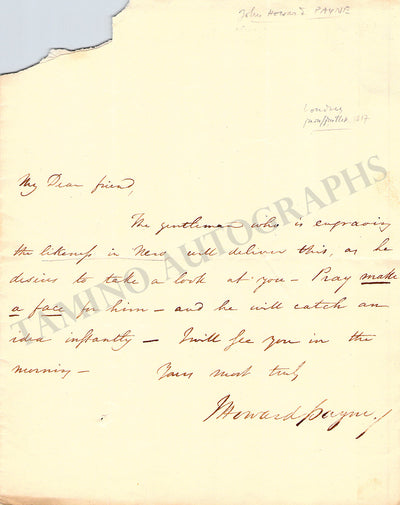 John Howard PAYNE
Londres
juin/juillet 1817
My Dear friend,
The gentleman who is engraving
the likeness in Nero will deliver this, as he
desires to take a look at you – Pray make
a face for him – and he will catch an
idea instantly – I will see you in the
morning –
Yours most truly
J Howard Payne.
TAMINO AUTOGRAPHS